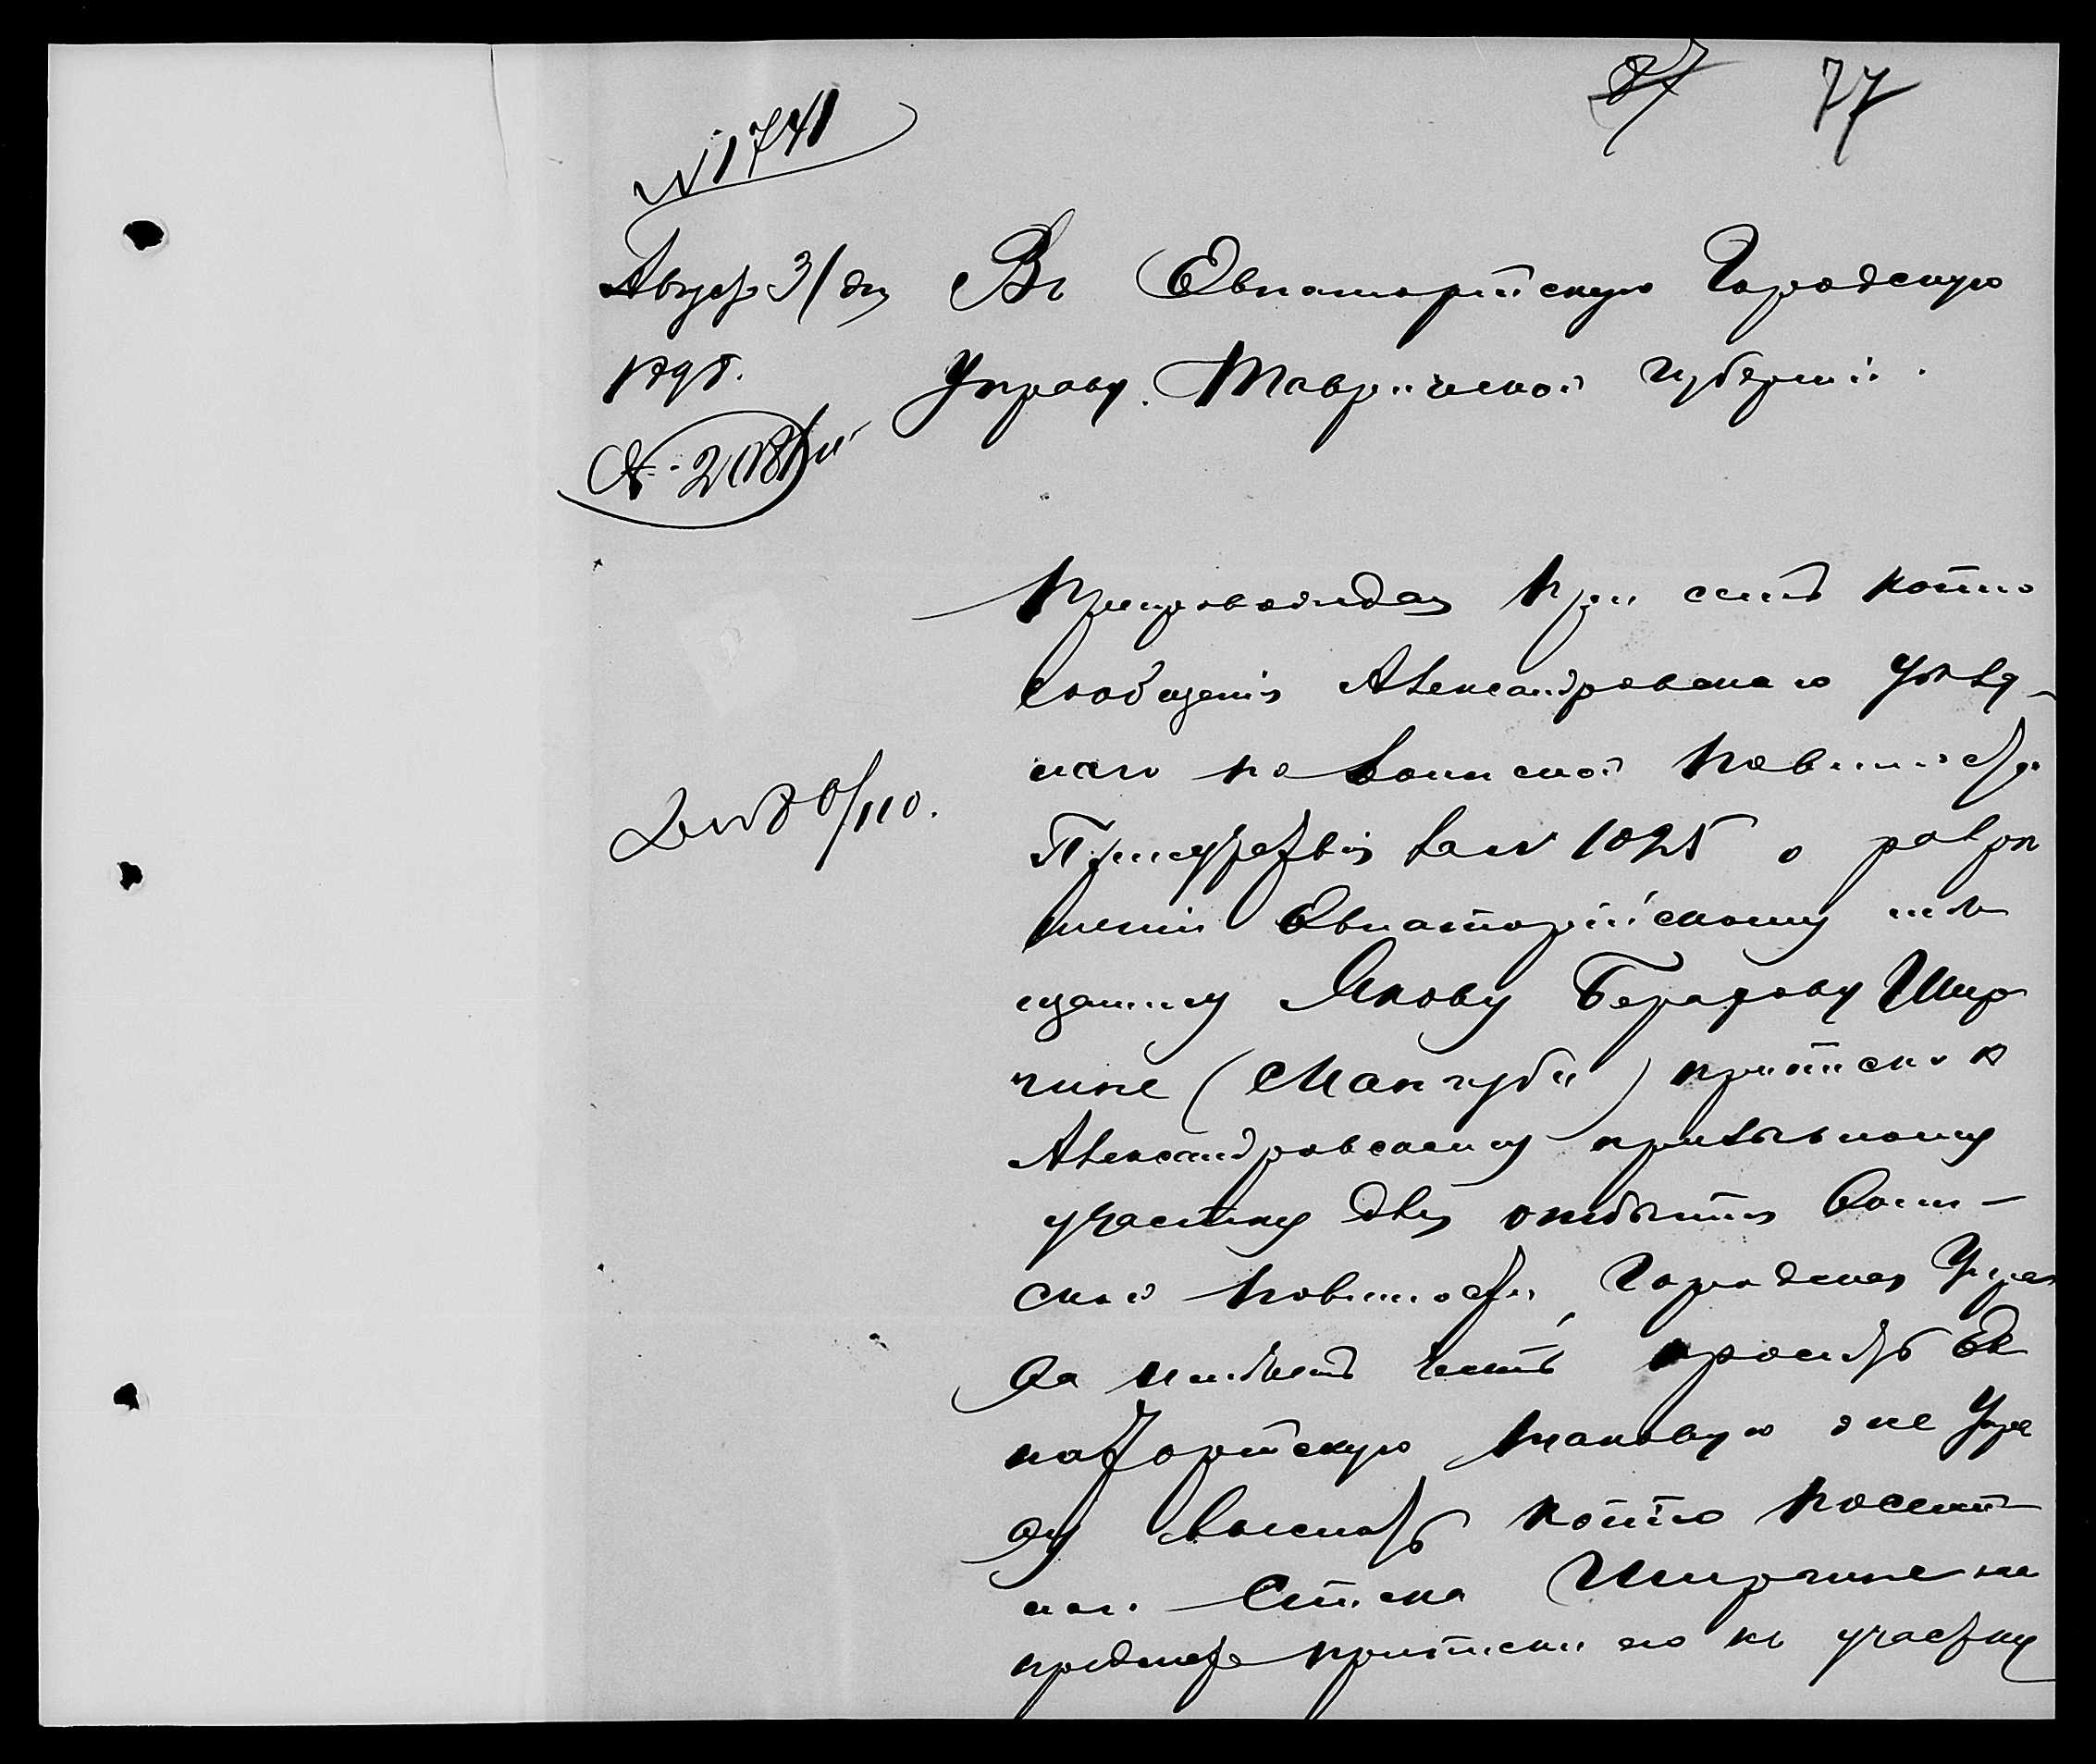 77
№ 1741
Августа 31 дня
1898.
Въ Евпаторійскую Городскую
Управу Таврической губерніи.
Препровождая при семъ копію
сообщенія Александровскаго уѣзд-
наго по воинской повинности
Присутствія за № 1025 о разрѣ
шеніи Евпаторійскому мѣ
щанину Якову Берахову Шир
чине (Мангуби) приписки къ
Александровскому призывному
участку для отбытія воин-
ской повинности, Городская Упра
ва имѣетъ честь просить Ев
паторійскую таковую же Упра
ву выслать копію посемей
наго списка Ширчине на
предметъ приписки его къ участку